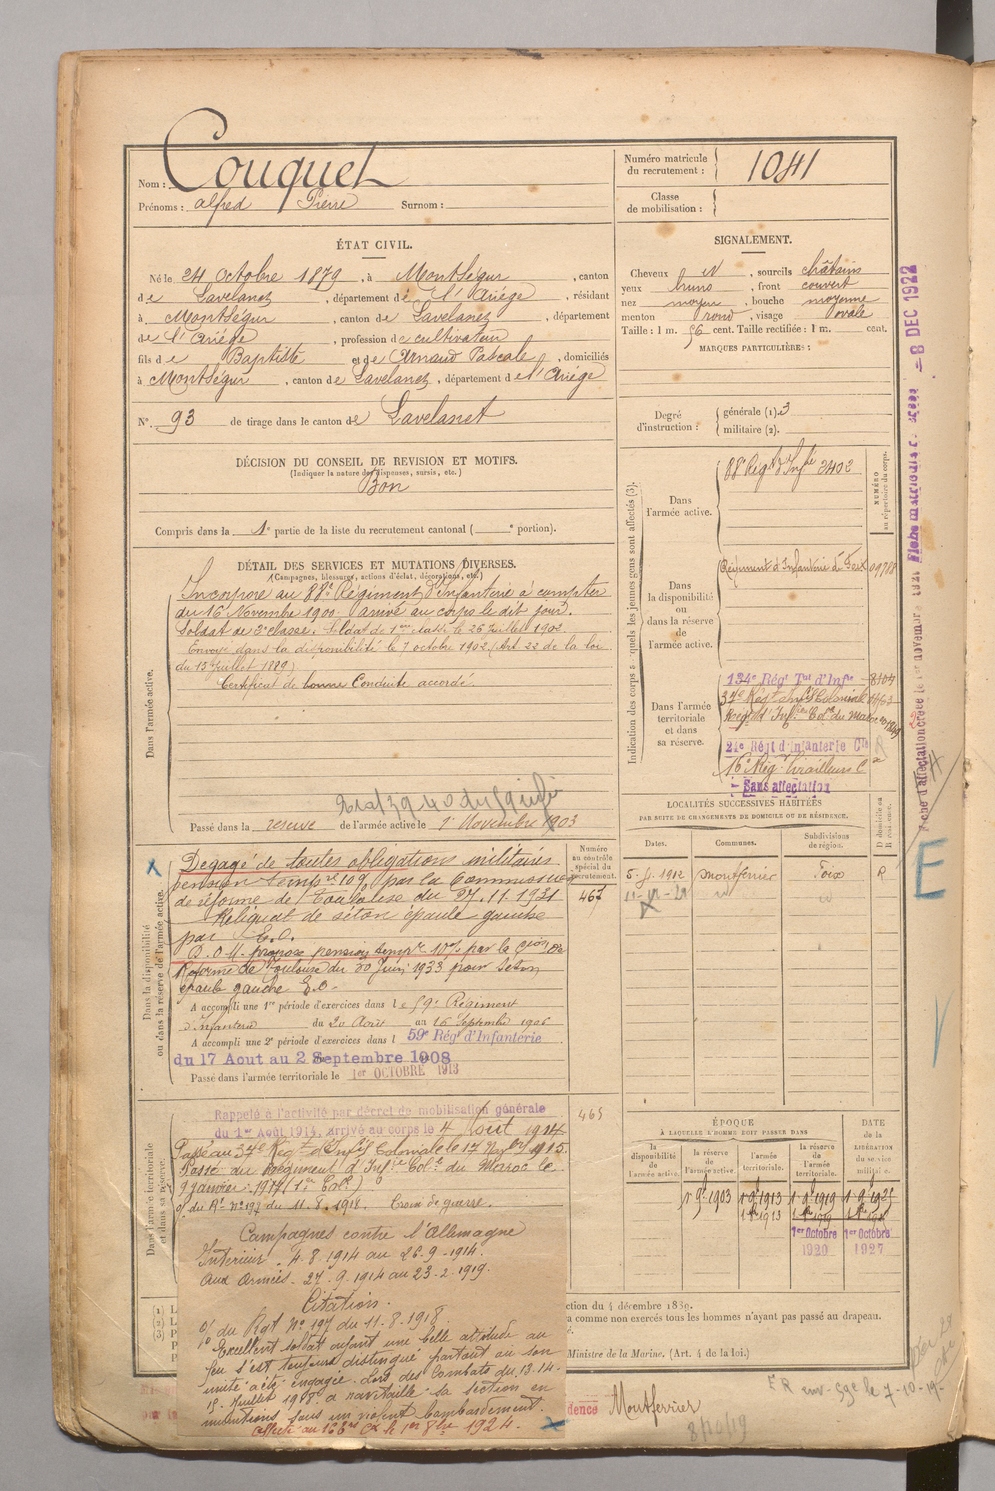 Nom : Couquet
Prénoms : alfred Pierre Surnom :
Numéro matricule du recrutement : 1041
Classe de mobilisation :
ÉTAT CIVIL.
Né le 24 Octobre 1879, à Montségur, canton
de Lavelanet, département de l'Ariège, résidant
à Montségur, canton de Lavelanet, département
de l'Ariège, profession de cultivateur
fils de Baptiste et de Arnaud Pascale, domiciliés
à Montségur, canton de Lavelanet, département de l'Ariège
N° 93 de tirage dans le canton de Lavelanet
DÉCISION DU CONSEIL DE REVISION ET MOTIFS.
(Indiquer la nature des dispenses, sursis, etc.)
Bon
Compris dans la 1e partie de la liste du recrutement cantonal ( e portion).
SIGNALEMENT.
Cheveux id, sourcils châtains
yeux bruns, front couvert
nez moyen, bouche moyenne
menton rond, visage ovale
Taille : 1 m. 56 cent. Taille rectifiée : 1 m. cent.
MARQUES PARTICULIÈRES :
Degré d'instruction : générale (1). 3
militaire (2).
DÉTAIL DES SERVICES ET MUTATIONS DIVERSES.
(Campagnes, blessures, actions d'éclat, décorations, etc.)
Dans l'armée active.
Incorporé au 88e Régiment d'Infanterie à compter
du 16 Novembre 1900. arrivé au corps le dit jour.
Soldat de 2e classe. Soldat de 1ere classe le 26 Juillet 1902.
Envoyé dans la disponibilité le 7 octobre 1902 (Art. 22 de la loi
du 15 Juillet 1889)
Certificat de bonne Conduite accordé.
Passé dans la reserve de l'armée active le 1er Novembre 1903
Indication des corps auxquels les jeunes gens sont affectés (3).
NUMÉRO au répertoire du corps.
Dans l'armée active.
88 Régt d'Infie 2402
Dans la disponibilité ou dans la réserve de l'armée active.
Régiment d'Infanterie de Foix
Dans l'armée territoriale et dans sa réserve.
134e Régt Tal d'Infie
37e Régt Infie Coloniale
Régt d'Infie Cole du Maroc
24e Régt d'Infanterie Cle
16e Régt Tirailleurs C
Sans affectation
8 DEC 1922
LOCALITÉS SUCCESSIVES HABITÉES
PAR SUITE DE CHANGEMENTS DE DOMICILE OU DE RÉSIDENCE.
Dates. Communes. Subdivisions de région. D domicile ou R résidence.
Montferrier Foix R
E
Dans la disponibilité ou dans la réserve de l'armée active.
Numéro au contrôle spécial du recrutement.
467
Dégagé de toutes obligations militaires
pension tempre 10% par la Commission
de réforme de Toulouse du 27.11.1931
Reliquat de séton épaule gauche
par E.O.
D.O.M. propose pension tempre 10% par la Cion de
Réforme de Toulouse du 30 Juin 1933 pour seton
épaule gauche E.O.
A accompli une 1re période d'exercices dans le 59e Régiment
d'Infanterie du 20 Août au 16 Septembre 1906
A accompli une 2e période d'exercices dans l 59e Rég' d'Infanterie
du 17 Aout au 2 Septembre 1908
Passé dans l'armée territoriale le 1er OCTOBRE 1913
Dans l'armée territoriale et dans sa réserve.
465
Rappelé à l'activité par décret de mobilisation générale
du 1er Août 1914, arrivé au corps le 4 Août 1914
Passé au 37e Régt d'Infie Coloniale le 17 Novbre 1915.
Passé au Régiment d'Infie Cole du Maroc le
9 janvier 1917 (1er Col.)
O/ du Rt N° 197 du 11.8.1918. Croix de guerre.
Campagnes contre l'Allemagne
Intérieur . 4-8-1914 au 26-9-1914.
Aux Armées. 27.9.1914 au 23-2-1919.
Citation.
O/ du Rgt N° 197 du 11-8-1918.
Excellent soldat ayant une belle attitude au
feu s'est toujours distingué partout où son
unité a été engagée. Lors des Combats du 13-14-
15 Juillet 1918 a ravitaillé sa section en
munitions sous un violent bombardement.
ÉPOQUE
À LAQUELLE L'HOMME DOIT PASSER DANS
la disponibilité de l'armée active.
la réserve de l'armée active.
l'armée territoriale.
la réserve de l'armée territoriale.
DATE de la LIBÉRATION du service militaire.
1er Octobre 1920
1er Octobre 1927
ction du 4 décembre 1889.
a comme non exercés tous les hommes n'ayant pas passé au drapeau.
Ministre de la Marine. (Art. 4 de la loi.)
dence Montferrier
8/10/19